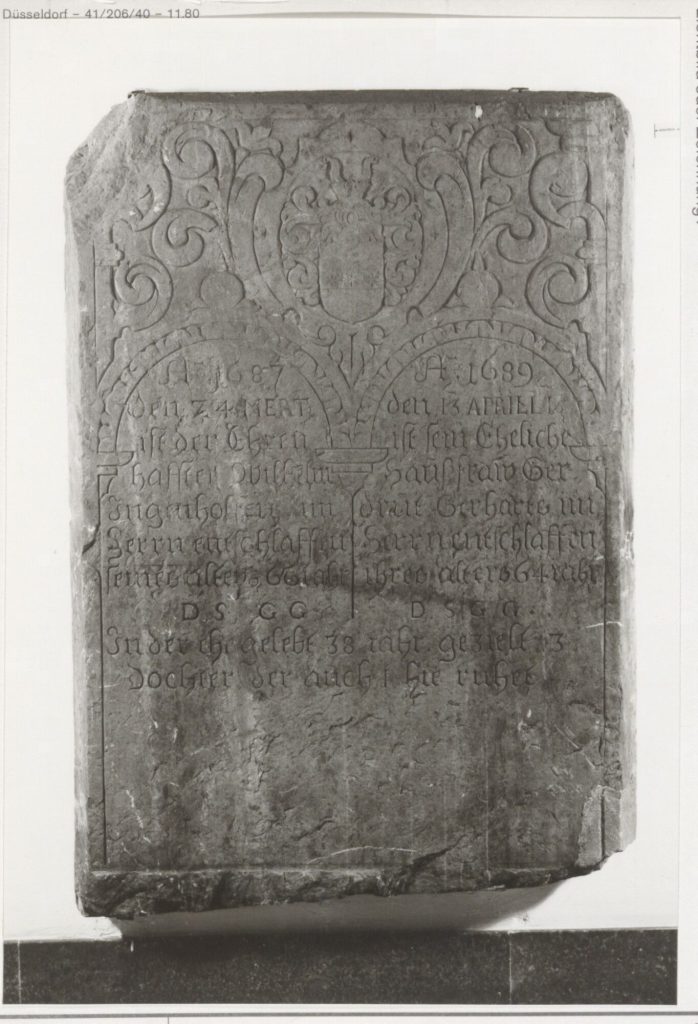 Düsseldorf – 41/206/40 – 11.80
Aº. 1687
den 24 MERT.
ist der Ehren
haffter Wilhelm
Ingenhoffen im
Herrn entschlaffen
seines alters 66 iahr
D S G G
Aº. 1689
den 13 APRILL
ist sein Eheliche
Haußfraw Ger
drut Gerharts im
Herrn entschlaffen
ihres alters 64 iahr
D S G G.
In der ehe gelebt 38 iahr. gezielt 3
dochter der auch 1 hie ruhet